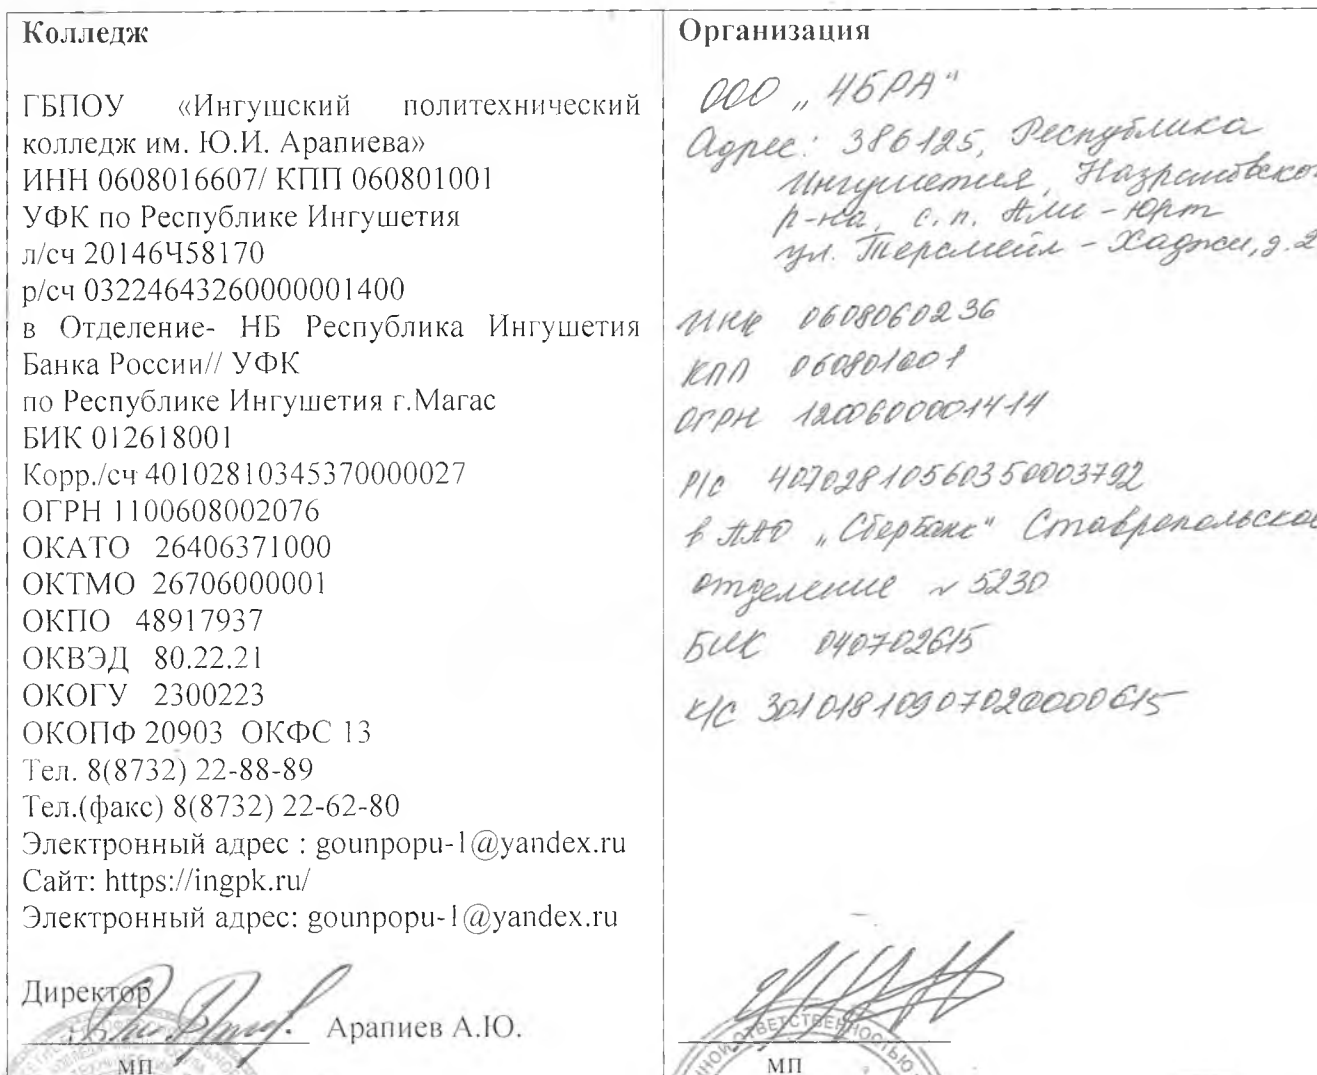 Колледж
ГБПОУ «Ингушский политехнический
колледж им. Ю.И. Арапиева»
ИНН 0608016607/ КПП 060801001
УФК по Республике Ингушетия
л/сч 20146Ч58170
р/сч 03224643260000001400
в Отделение- НБ Республика Ингушетия
Банка России// УФК
по Республике Ингушетия г.Магас
БИК 012618001
Корр./сч 40102810345370000027
ОГРН 1100608002076
ОКАТО 26406371000
ОКТМО 26706000001
ОКПО 48917937
ОКВЭД 80.22.21
ОКОГУ 2300223
ОКОПФ 20903 ОКФС 13
Тел. 8(8732) 22-88-89
Тел.(факс) 8(8732) 22-62-80
Электронный адрес : gounpopu-1@yandex.ru
Сайт: https://ingpk.ru/
Электронный адрес: gounpopu-1@yandex.ru
Директор
Арапиев А.Ю.
МП
Организация
ООО „ЧБРА"
Адрес: 386125, Республика
Ингушетия, Назрановско
р-на, с.п. Али-Юрт
ул. - Хаджи, д. 2
ИНН 0608060236
КПП 060801001
ОГРН 1200600001414
Р/с 40702810560350003792
в ПАО „Сбербанк" Ставропольское
отделение № 5230
БИК 040702615
К/С 30101810907020000615
ОТВЕТСТВЕННОСТЬЮ
МП